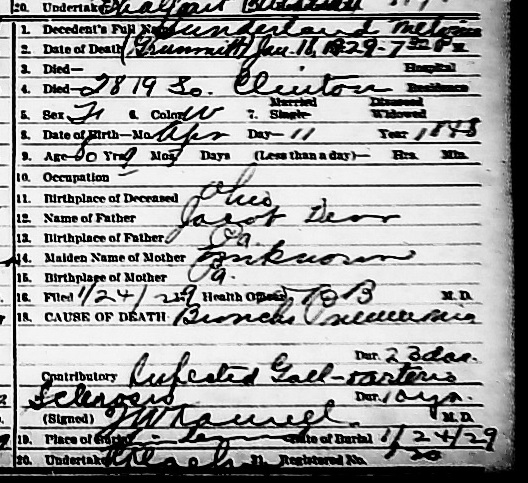 20. Undertaker
1. Decedent's Full Name Sunderland Melvina
2. Date of Death (Grummitt) Jan. 18, 1929 - 7 30 P m
3. Died— Hospital
4. Died—2819 So. Clinton Residence
5. Sex F 6. Color W 7. Married Single Diseased Widowed
8. Date of Birth—Mo. Apr Day— 11 Year 1848
9. Age 80 Yrs 9 Mos Days (Less than a day)— Hrs. Min.
10. Occupation
11. Birthplace of Deceased Ohio
12. Name of Father Jacob Dear
13. Birthplace of Father Pa.
14. Maiden Name of Mother Unknown
15. Birthplace of Mother Pa.
16. Filed 1/24/29 Health Officer B M. D.
18. CAUSE OF DEATH Broncho Pneumonia
Dur. 23 das.
Contributory Infected Gall - arterio
Sclerosis Dur. 10 yr.
(Signed) M. D.
19. Place of Burial Date of Burial 1/24/29
20. Undertaker 21. Registered No. 120